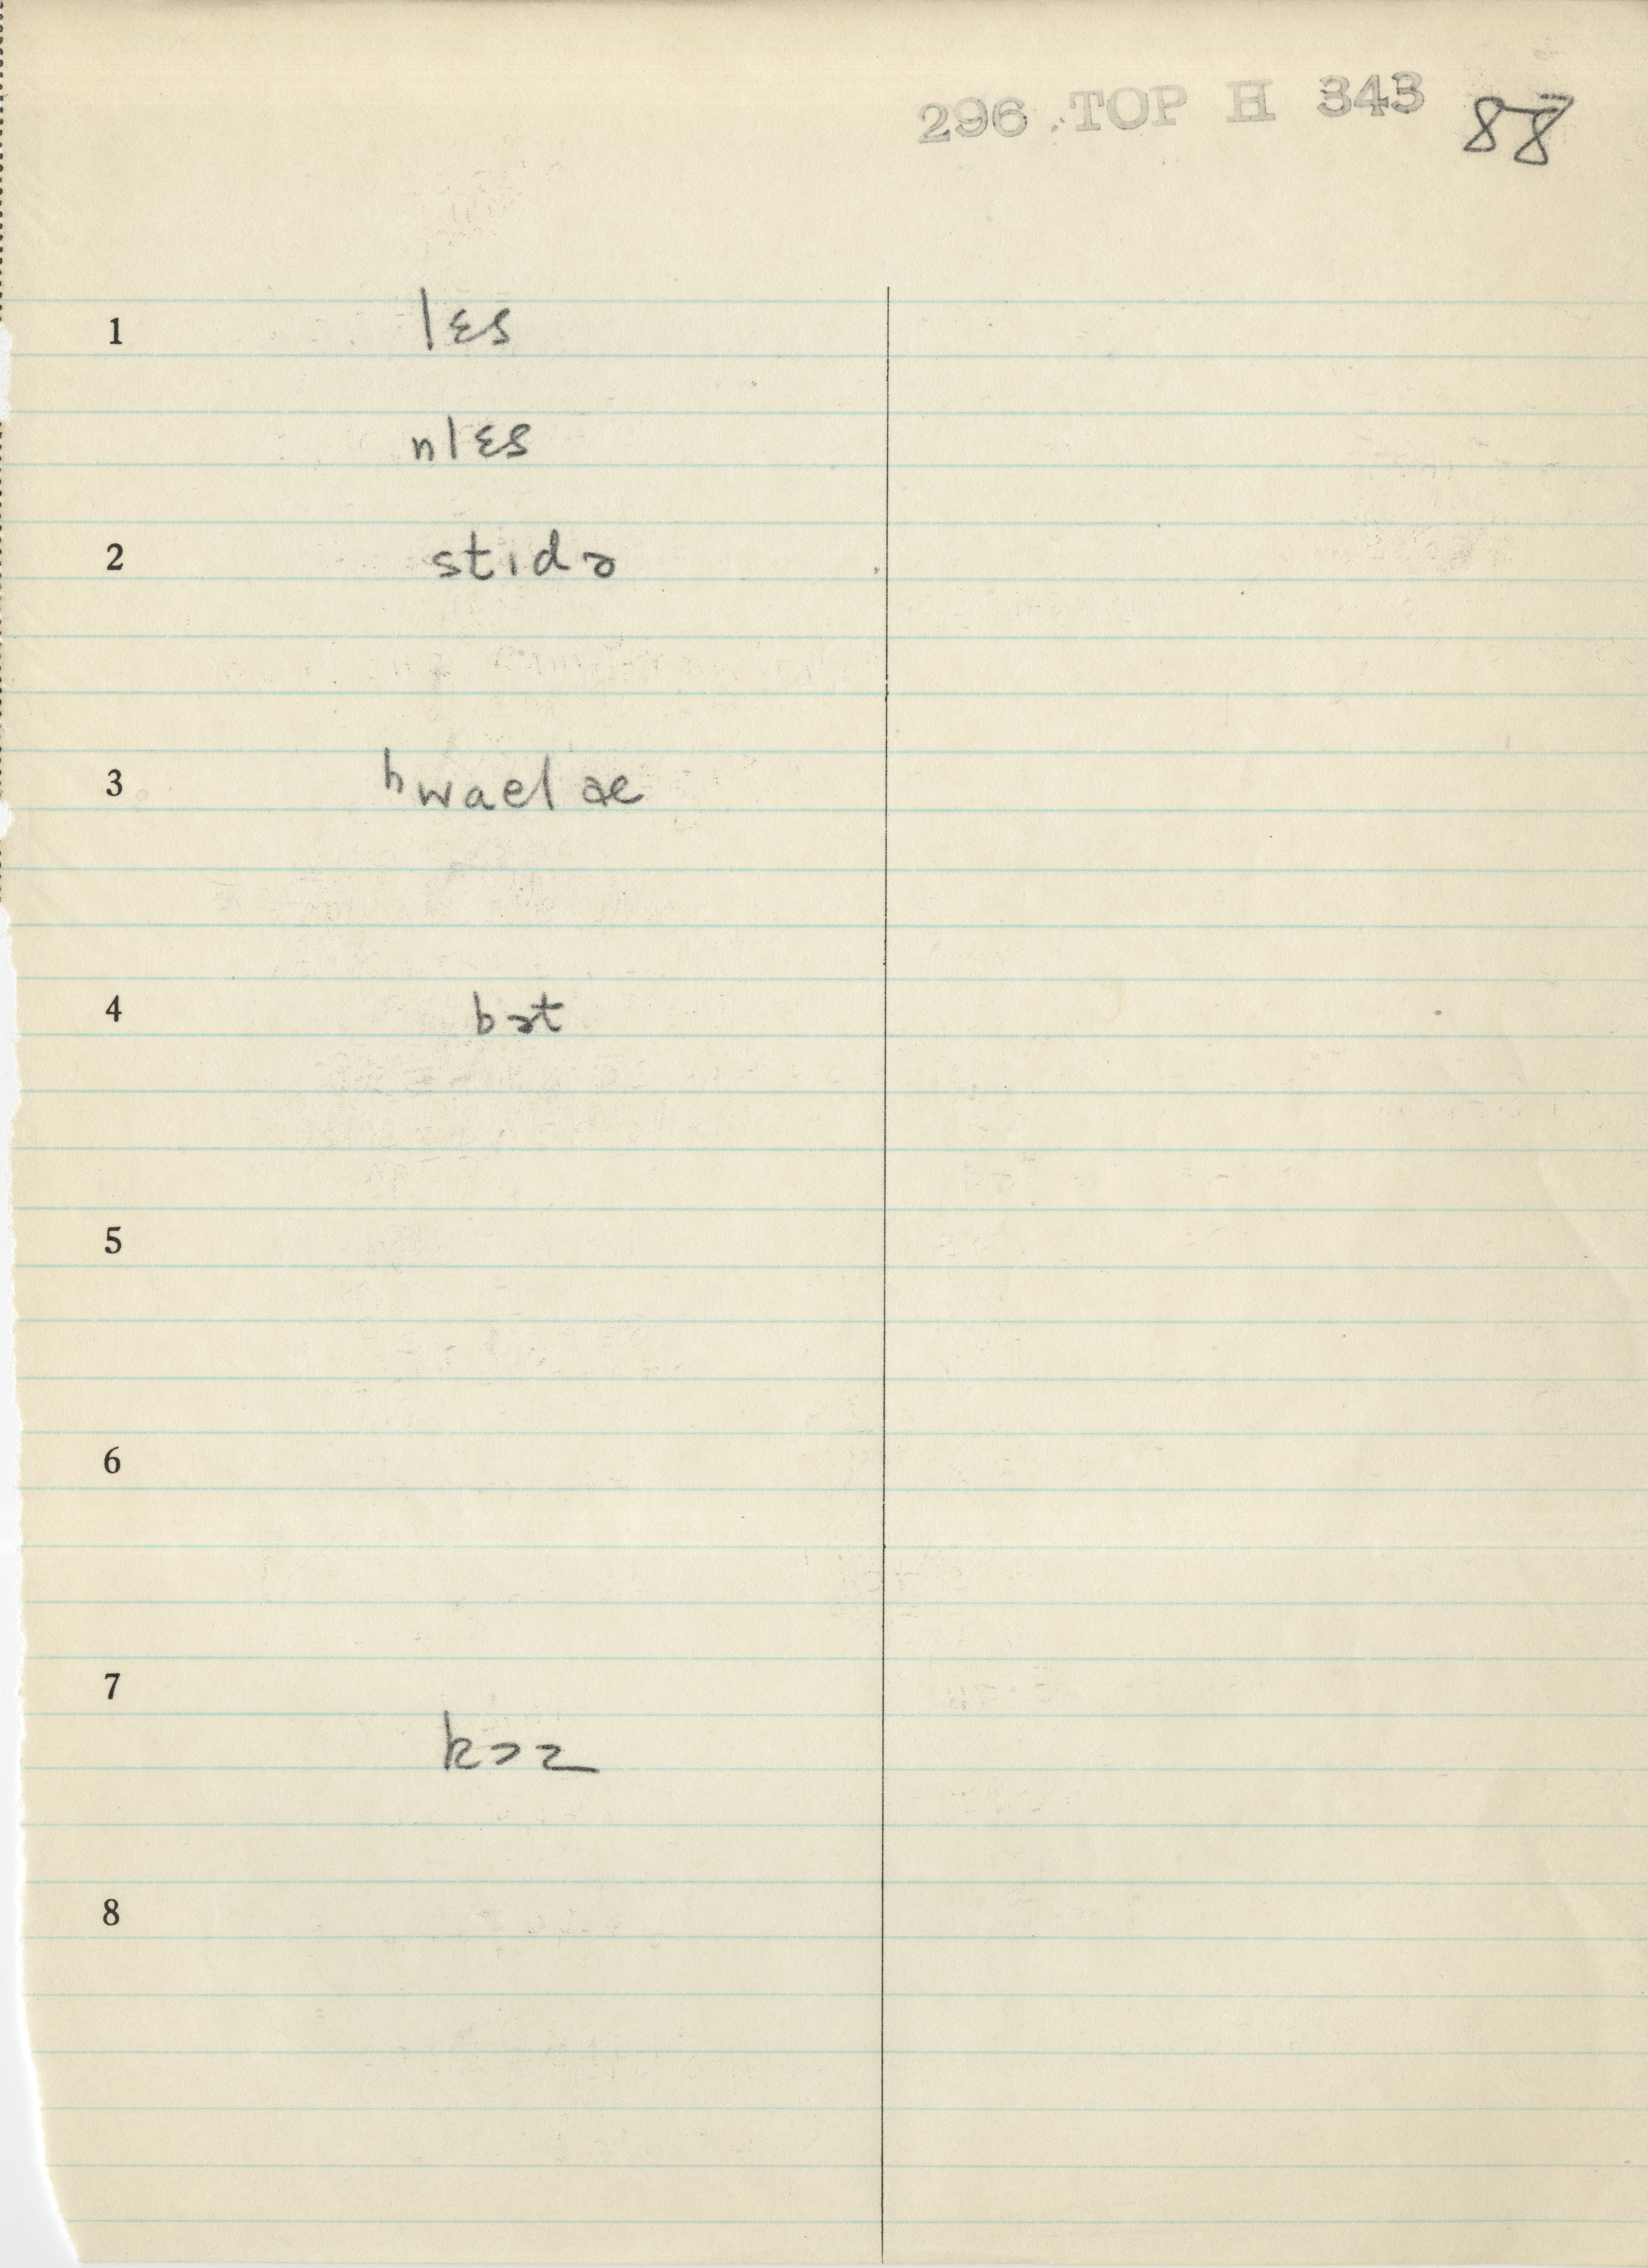 296 TOP H 343 88
1 lɛs
nlɛs
2 stıdə
3 ʰwael æ
4 bət
5
6
7
kɔz
8